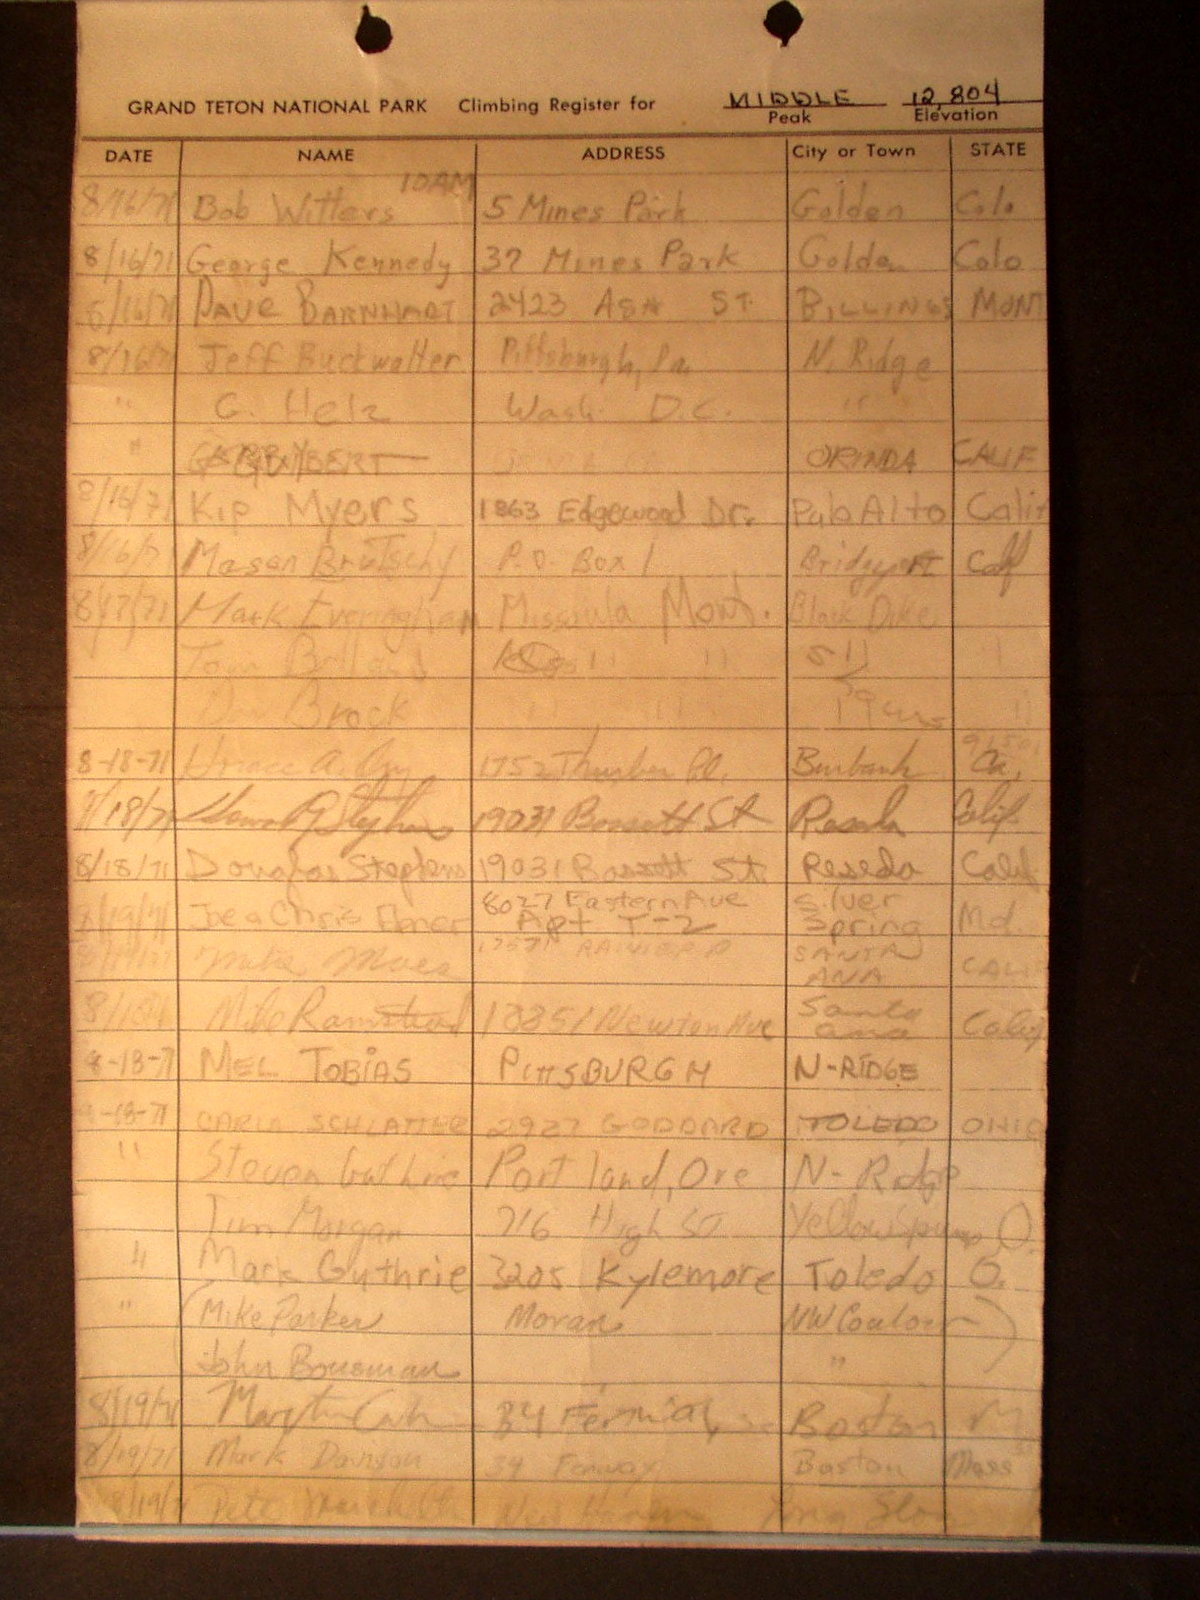 GRAND TETON NATIONAL PARK Climbing Register for MIDDLE 12,804
Peak Elevation
DATE NAME ADDRESS City or Town STATE
10AM
8/16/71 Bob Witters 5 Mines Park Golden Colo
8/16/71 George Kennedy 37 Mines Park Golden Colo
8/16/71 DAVE BARNHART 2423 ASH ST. BILLINGS MONT
8/16/71 Jeff Buckwalter Pittsburgh, Pa. N. Ridge
" C. Helz Wash. D.C. "
" ORINDA CALIF
8/16/71 Kip Myers 1863 Edgewood Dr. Palo Alto Calif
8/16/71 Mason P.O. Box 1 Bridgeport Calf
8/17/71 Mark Everingham Missoula Mont. Black Dike
Tom " " "
Brock " " "
8-18-71 1752 Thurber Pl. Burbank Ca.
8/18/71 Stephens 19031 Bassett St Reseda Calif.
8/18/71 Douglas Stephens 19031 Bassett St. Reseda Calif
8027 Eastern Ave Silver
8/19/71 Joe & Chris Apt T-2 Spring Md.
Mike SANTA
ANA CALIF
8/18/71 Mike 18251 Newton Ave Santa
ana Calif
8-18-71 MEL TOBIAS PITTSBURGH N-RIDGE
8-18-71 CARLA SCHLATTER 2927 GODDARD TOLEDO OHIO
" Steven Guthrie Portland, Ore N- Ridge
Tim Morgan 716 High ST Yellow Springs O.
" Mark Guthrie 3205 Kylemore Toledo O.
" (Mike Parker Moran NW Couloir )
John Bousman "
8/19/71 Boston
8/19/71 Mark 34 Fenway Boston Mass
8/19/71 Pete New Haven